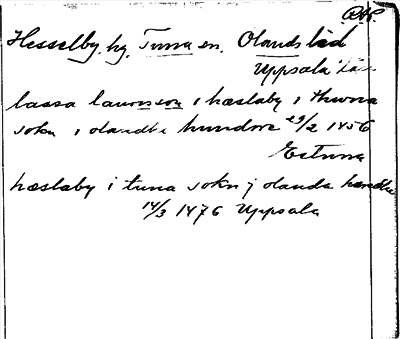 Hesselby, hg, Tuna sn, Olands hd
Uppsala län
lassa lauronson i hæslaby i thuna
sokn i olandbe hundore 29/2 1456
Estuna
hæslaby i tuna sokn j olanda hændre
14/3 1476 Uppsala